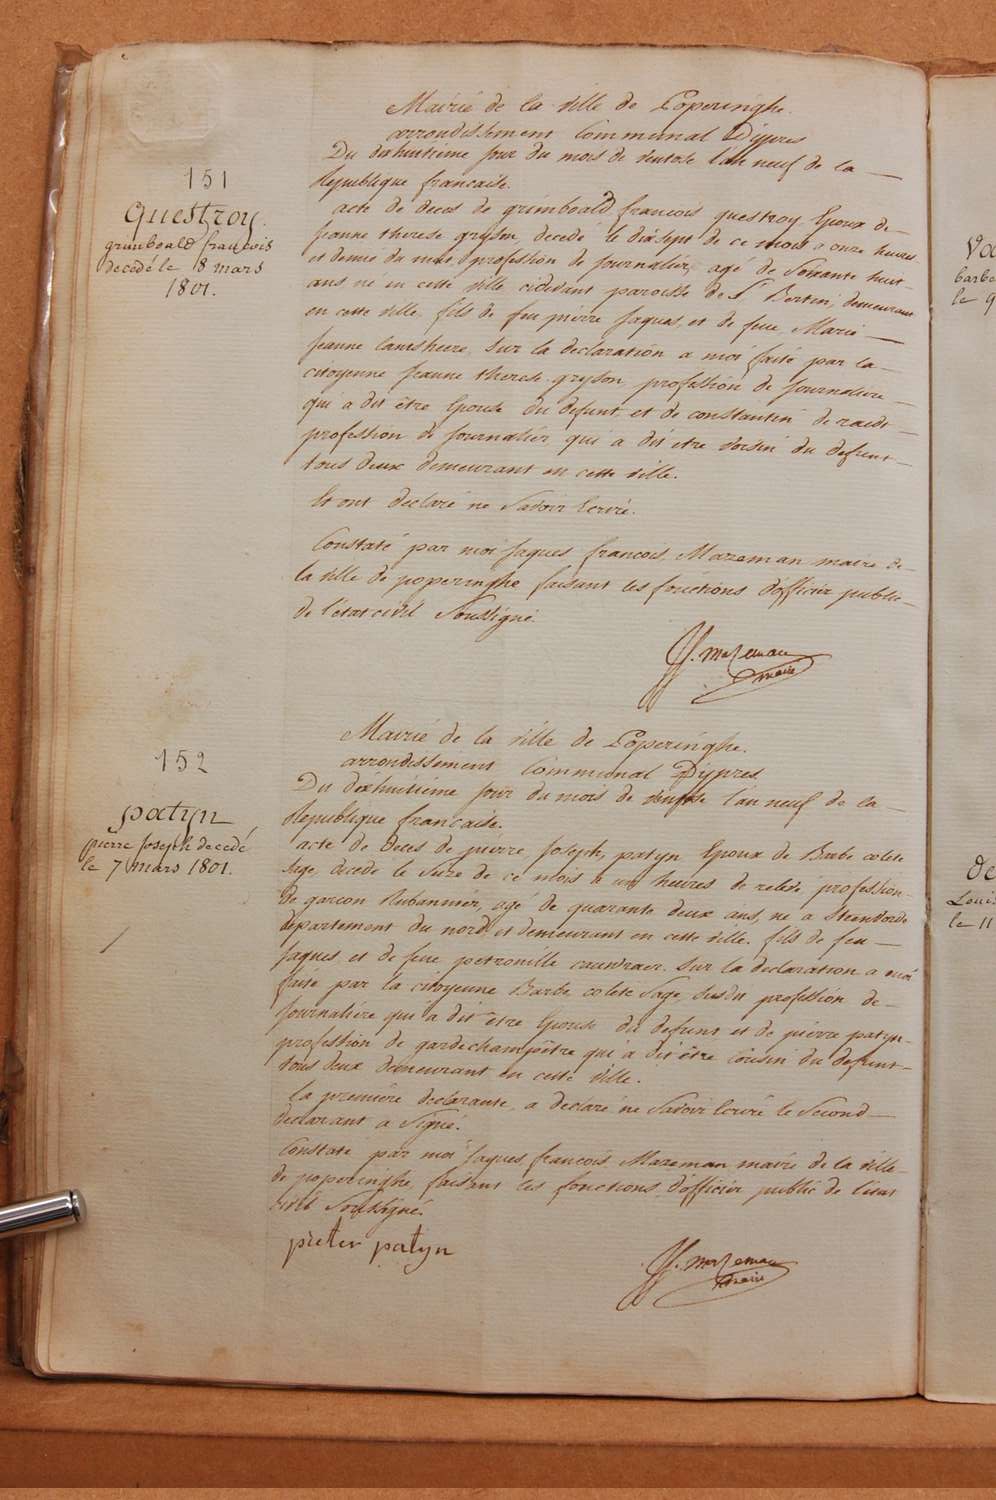 151
Questroy.
grimboald françois
decedé le 8 mars
1801.
Mairié de la ville de Poperinghe.
arrondissement Communal D'ypres
Du dixhuitieme jour du mois de ventose l'an neuf de la
Republique francaise.
acte de deces de grimboald francois questroy Epoux de
Jeanne therese gryson, decedé le dixsept de ce mois a onze heures
et demie du profession de journalier, agé de Soixante huit
ans né en cette ville cidevant paroisse de St Bertin, demeurant
en cette ville, fils de feu pierre Jaques, et de feue Marie
Jeanne Sur la declaration a moi faité par la
citoyenne Jeanne therese gryson, profession de journaliere
qui a dit être Epouse du defunt, et de constantin de raedt
profession de journalier qui a dit etre voisin du defunt
tous deux demeurant en cette ville.
Et ont declaré ne Savoir Ecrire.
Constaté par moi Jaques francois Mazeman maire de
la ville de poperinghe faisant les fonctions d'officier public
de l'état civil Soussigné.
JJ. Mazeman
maire
152
patyn
pierre Joseph decedé
le 7 mars 1801.
Mairié de la ville de Poperinghe.
arrondissement Communal D'ypres
Du dixhuitieme jour du mois de ventose l'an neuf de la
Republique francaise.
acte de deces de pierre Joseph patyn Epoux de Barbe colete
Sage, decedé le Sieze de ce mois a un heures de relevé, profession
de garcon Rubannier, agé de quarante deux ans, né a Steenvorde
departement du nord, et demeurant en cette ville. fils de feu
Jaques, et de feue petronille Sur la declaration a moi
faite par la citoyenne Barbe colete Sage, susdit profession de
journaliére qui a dit être Epouse du defunt et de pierre patyn
profession de gardechampêtre qui a dit être cousin du defunt
tous deux demeurant en cette ville.
la premiere declarante, a declaré ne Savoir Ecrire le Second
declarant a Signé.
Constaté par moi Jaques francois Mazeman maire de la ville
de poperinghe, faisant les fonctions d'officier public de l'état
civil Soussigné.
pieter patyn
JJ. Mazeman
maire
barbe
le 9
De
Louis
le 11